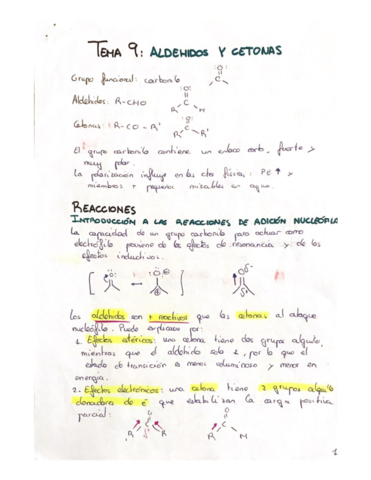 TEMA 9: ALDEHIDOS Y CETONAS
Grupo funcional: carbonilo
:O:
C
Aldehidos: R-CHO
:O:
C
R H
Cetonas: R-CO-R'
:O:
C
R R'
El grupo carbonilo contiene un enlace corto, fuerte y
muy polar.
La polarización influye en las ctes físicas: PE ↑ y
miembros + pequeños miscibles en agua.
REACCIONES
INTRODUCCIÓN A LAS REACCIONES DE ADICIÓN NUCLEÓFILA
La capacidad de un grupo carbonilo para actuar como
electrófilo proviene de los efectos de resonancia y de los
efectos inductivos.
Los aldehidos son + reactivos que las cetonas al ataque
nucleófilo. Puede explicarse por:
1. Efectos estéricos: una cetona tiene dos grupos alquilo,
mientras que el aldehido solo 1, por lo que el
estado de transición es menos voluminoso y menor en
energía.
2. Efectos electrónicos: una cetona tiene 2 grupos alquilo
donadores de é que estabilizan la carga positiva
parcial:
R C R'
R C H
1